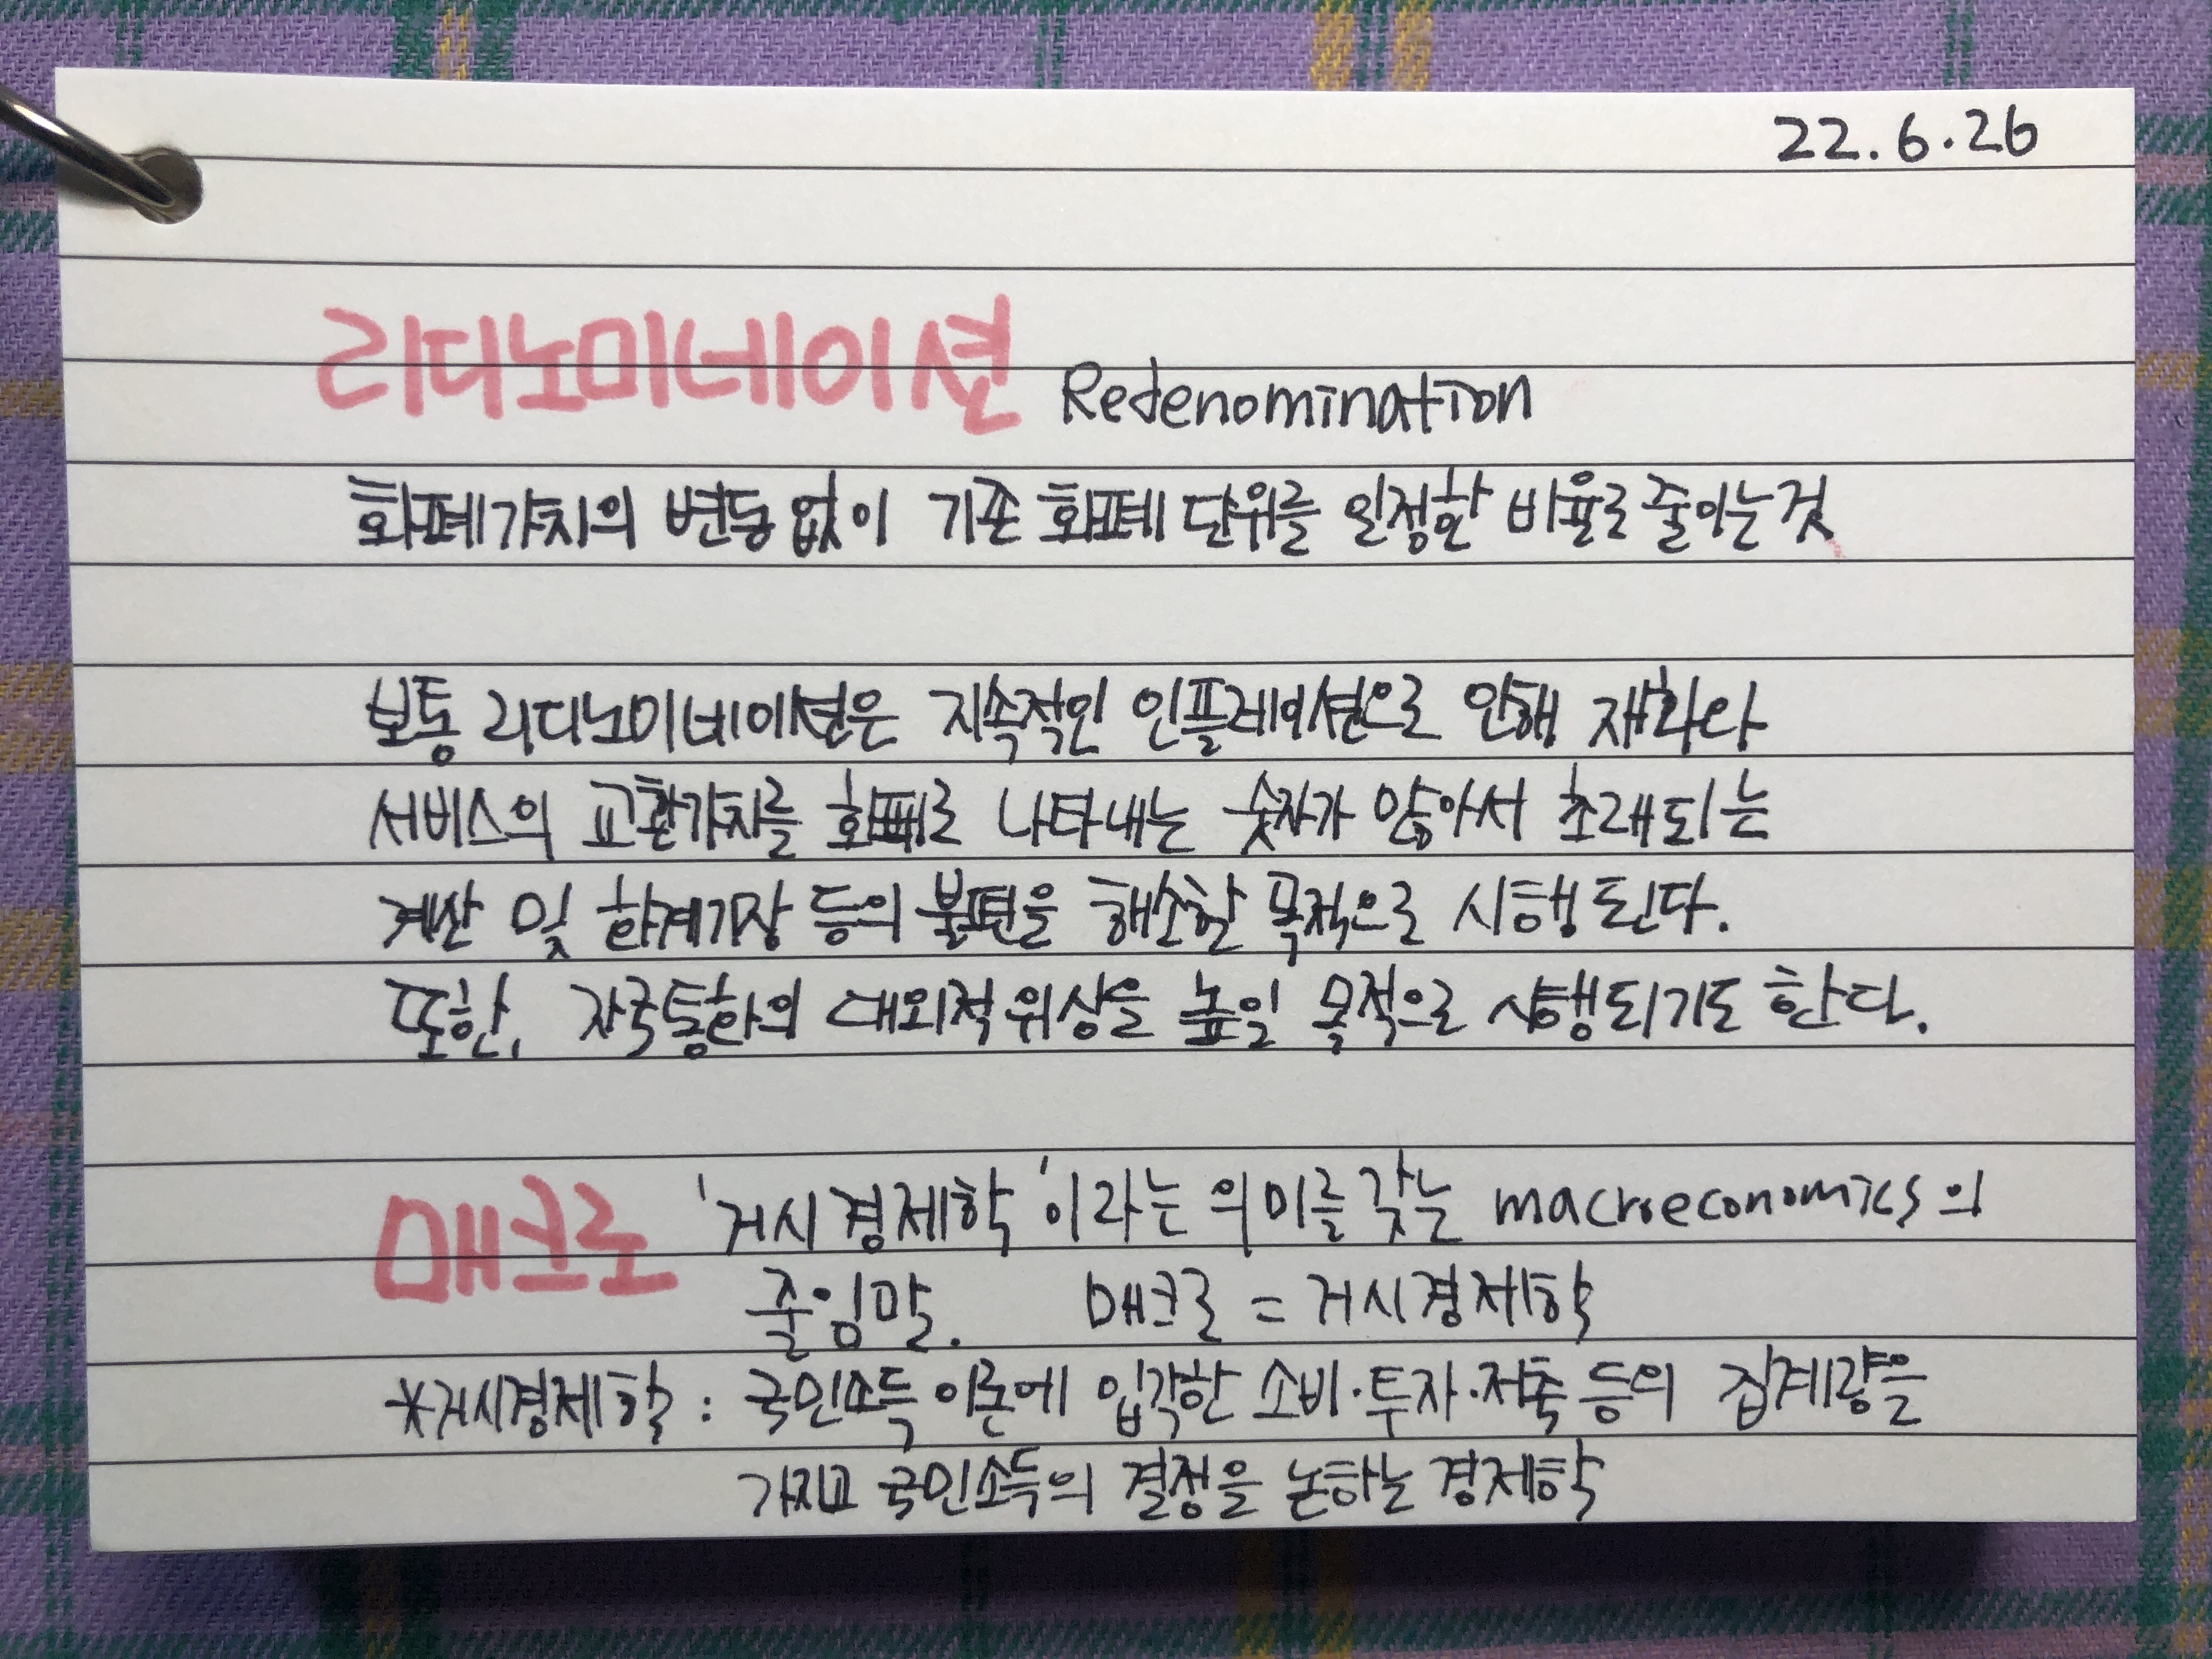 22.6.26
리디노미네이션 Redenomination
화폐가치의 변동 없이 기존 화폐 단위를 일정한 비율로 줄이는 것
보통 리디노미네이션은 지속적인 인플레이션으로 인해 재화와
서비스의 교환가치를 화폐로 나타내는 숫자가 많아서 초래되는
계산 및 회계기장 등의 불편을 해소할 목적으로 시행된다.
또한, 자국통화의 대외적 위상을 높일 목적으로 시행되기도 한다.
매크로 '거시경제학'이라는 의미를 갖는 macroeconomics의
줄임말. 매크로 = 거시경제학
*거시경제학 : 국민소득 이론에 입각한 소비·투자·저축 등의 집계량을
가지고 국민소득의 결정을 논하는 경제학